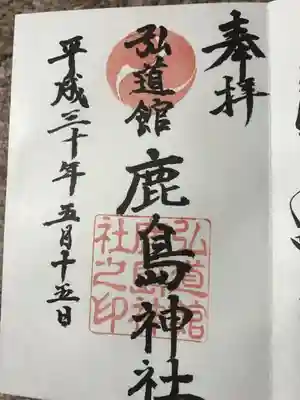 奉拝
弘道館
鹿島神社
弘道館
鹿島神
社之印
平成三十年五月十五日